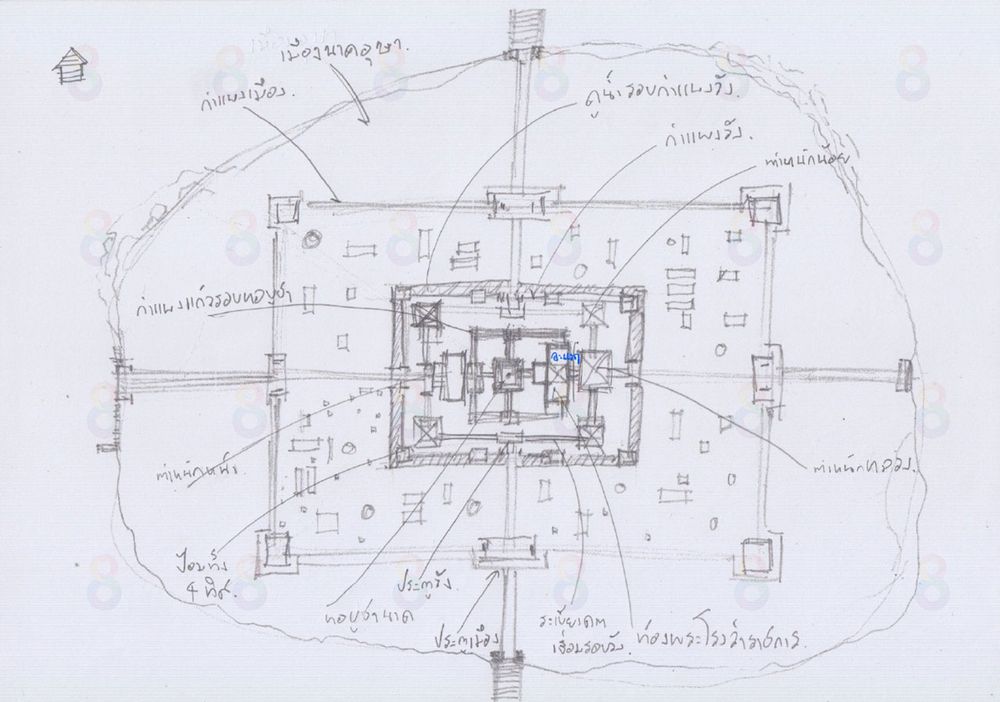 เมืองนาคอุษา.
กำแพงเมือง.
คูน้ำรอบกำแพงวัง.
กำแพงวัง.
ตำหนักน้อย
กำแพงแก้วรอบหอบูชา
ตำหนักหน้า.
ตำหนักหลวง.
ป้อมทั้ง
4 ทิศ.
ประตูวัง
หอบูชานาค
ประตูเมือง
ระเบียงคต
เชื่อมรอบวัง.
ท้องพระโรงว่าราชการ.
8